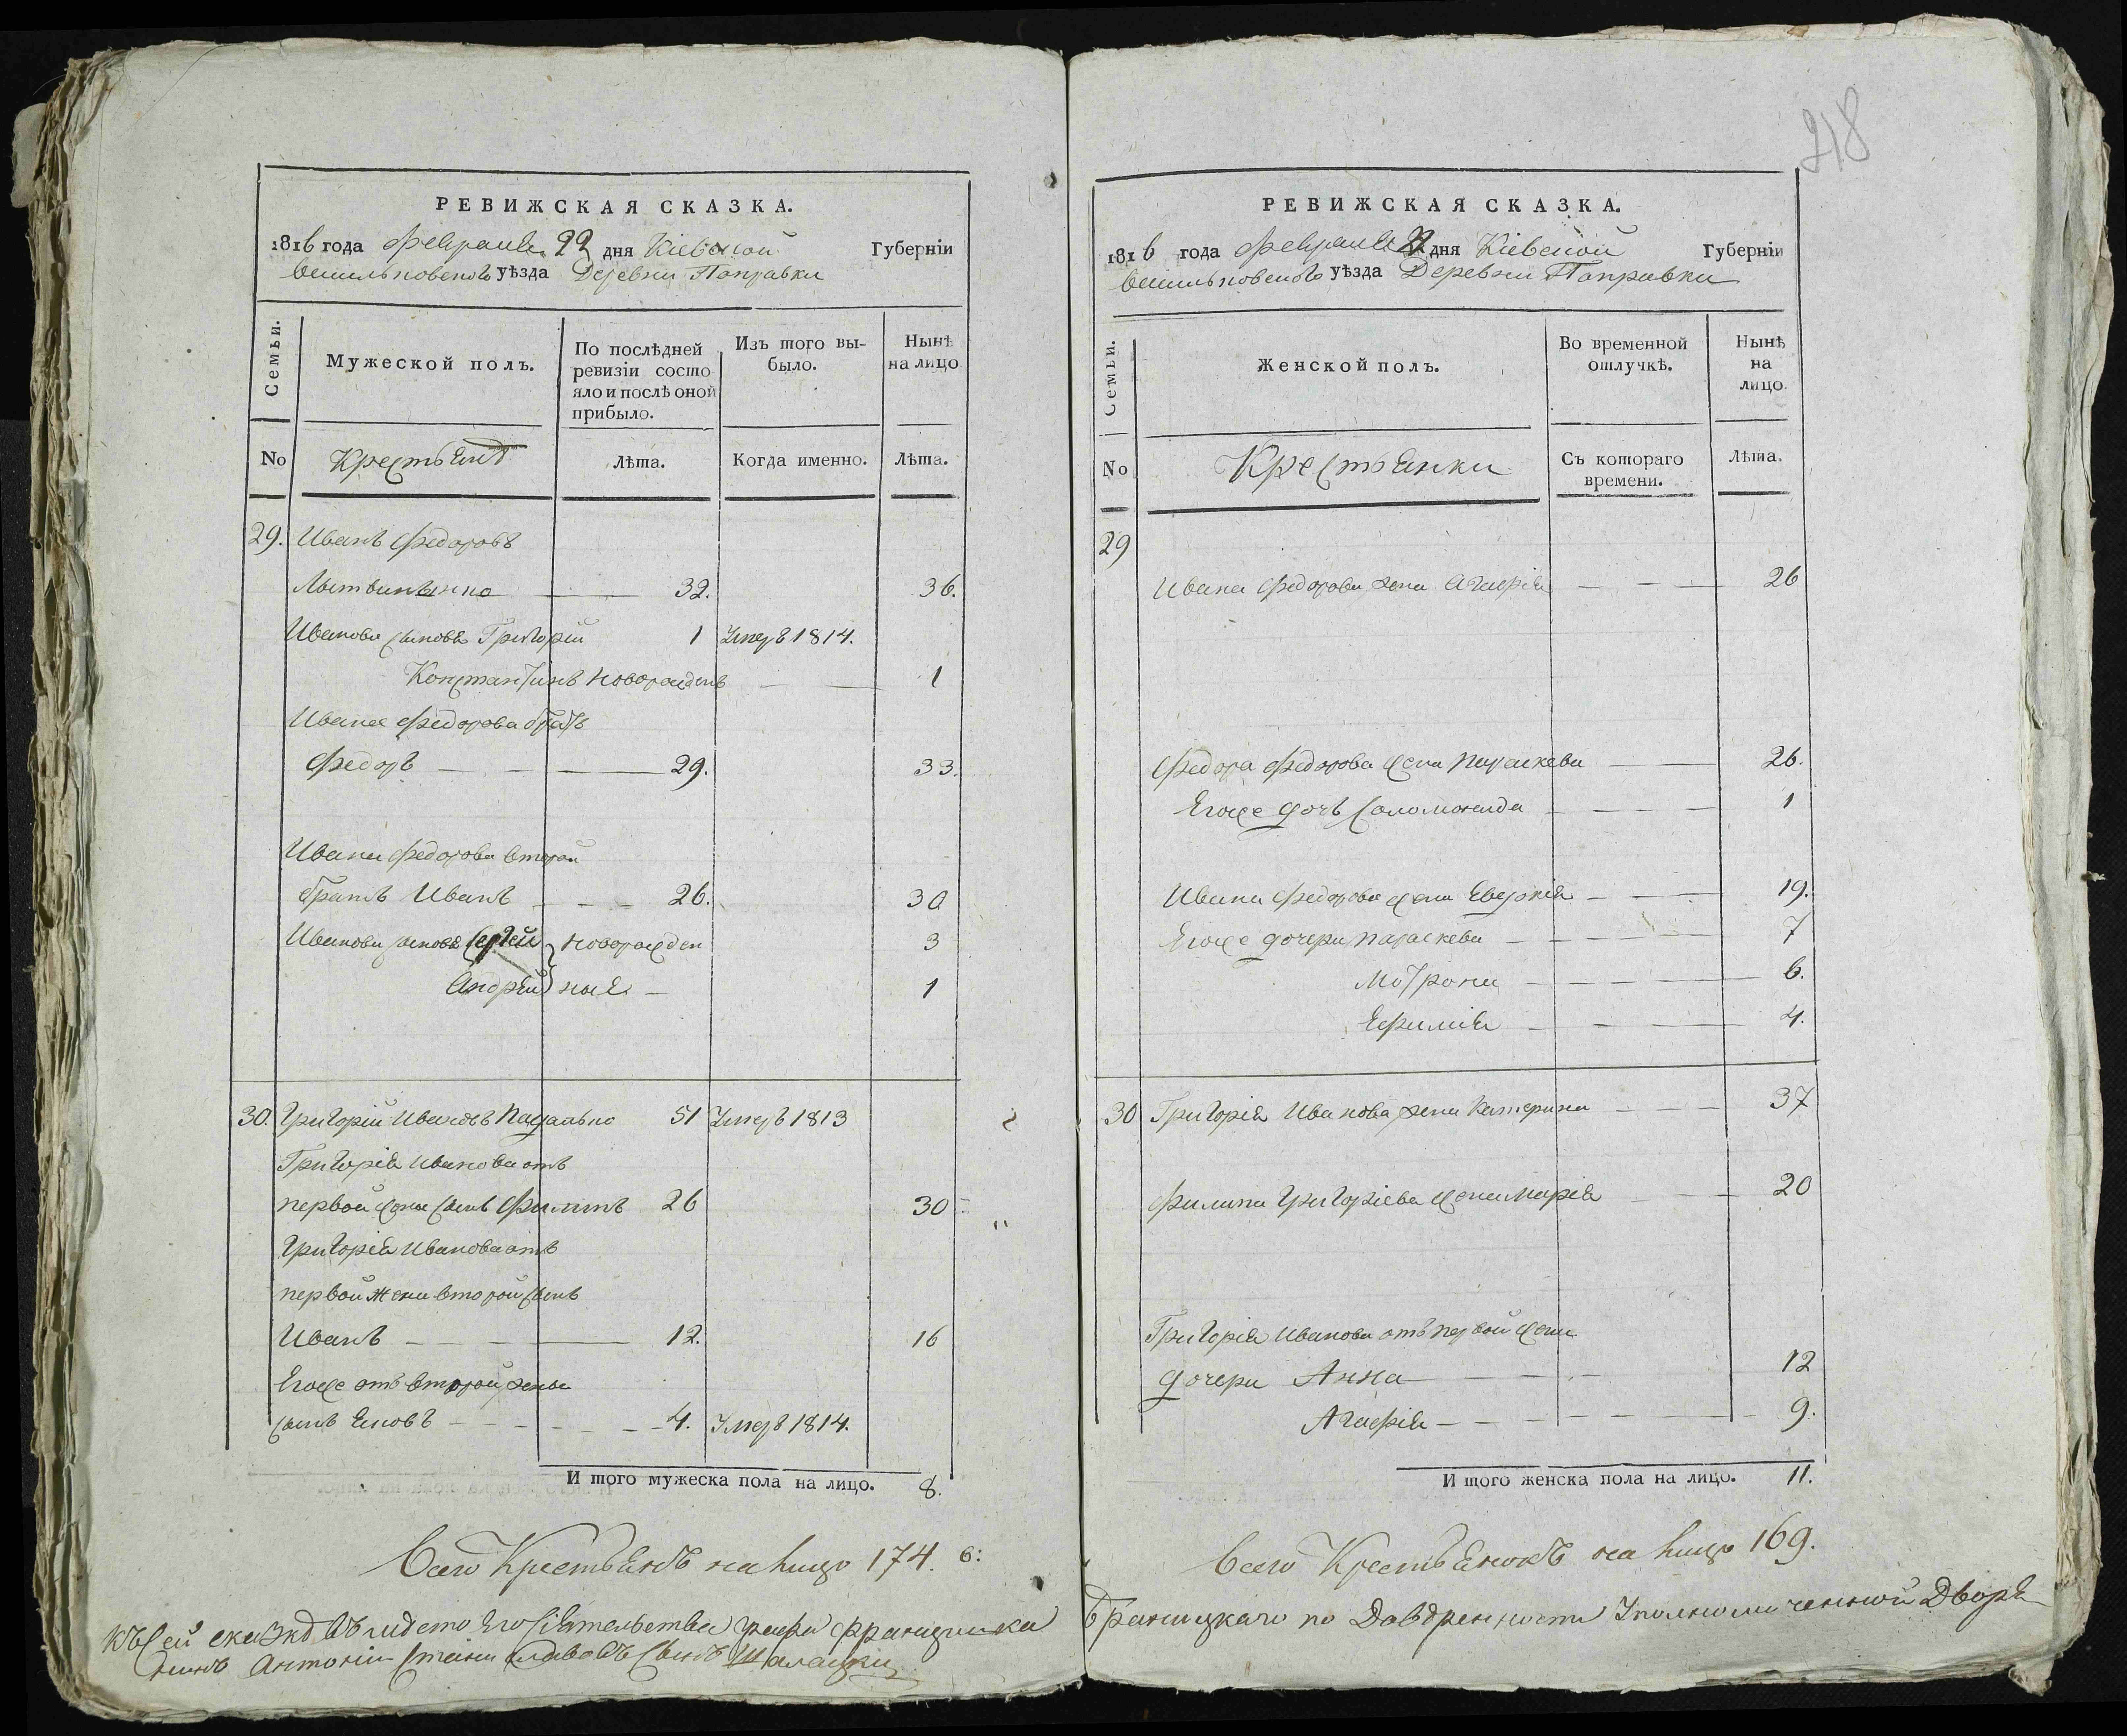 218
РЕВИЖСКАЯ СКАЗКА.
1816 года Февраля 22 дня Кіевской Губерніи
Васильковского уѣзда Деревни Поправки
Семьи.
Мужеской полъ.
По послѣдней ревизіи состояло и послѣ оной прибыло.
Изъ того выбыло.
Нынѣ на лицо
No
Крестьянъ
Лѣта.
Когда именно.
Лѣта.
29. Иванъ Федоровъ
Литвиненко 32. 36.
Иванова сыновя Григорій 1 Умеръ 1814.
Константинъ новорожденъ 1
Ивана Федорова братъ
Федоръ 29. 33.
Ивана Федорова второй
братъ Иванъ 26. 30
Иванови сыновя Сергей новорожден 3
Андрей ныя 1
30. Григорій Ивановъ 51 Умеръ 1813
Григорія Иванова отъ
первой жены сынъ Филипъ 26 30
Григорія Иванова отъ
первой жени второй сынъ
Иванъ 12. 16
Егоже отъ второй жены
сынъ Яковъ 4. Умеръ 1814.
И того мужеска пола на лицо. 8.
Всего Крестьянъ на лицо 174.
РЕВИЖСКАЯ СКАЗКА.
1816 года Февраля 22 дня Кіевской Губерніи
Васильковского уѣзда Деревни Поправки
Семьи.
Женской полъ.
Во временной отлучкѣ.
Нынѣ на лицо.
No
Крестьянки
Съ котораго времени.
Лѣта.
29
Ивана Федорова жена Агафія 26
Федора Федорова жена Параскева 26.
Егоже дочь Соломонида 1
Ивана Федорова жена Евдокія 19.
Егоже дочери Параскева 7
Мотрона 6.
Ефимія 4.
30 Григорія Иванова жена Катерина 37
Филипа Григоріева жена Марія 20
Григорія Иванова отъ первой жены
дочери Анна 12
Агафія 9.
И того женска пола на лицо. 11.
Всего Крестьянокъ на лицо 169.
Къ сей сказкѣ въ мѣсто Его Сіятельства Графа Францишка Браницкаго по Довѣренности Уполномоченной Дворя
нинъ Антоній Станиславовъ сынъ